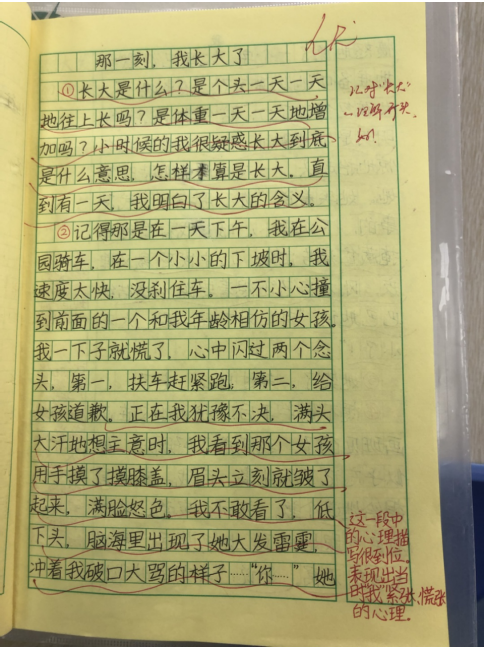 那一刻，我长大了
①长大是什么？是个头一天一天
地往上长吗？是体重一天一天地增
加吗？小时候的我很疑惑长大到底
是什么意思，怎样才算是长大。直
到有一天，我明白了长大的含义。
②记得那是在一天下午，我在公
园骑车，在一个小小的下坡时，我
速度太快，没刹住车。一不小心撞
到前面的一个和我年龄相仿的女孩。
我一下子就慌了，心中闪过两个念
头，第一，扶车赶紧跑。第二，给
女孩道歉。正在我犹豫不决，满头
大汗地想主意时，我看到那个女孩
用手摸了摸膝盖，眉头立刻就皱了
起来，满脸怒色。我不敢看了，低
下头，脑海里出现了她大发雷霆，
冲着我破口大骂的样子……“你……”她
以对“长大”
理解开头，
这一段中
的心理描
写很到位，
表现出当
时“我”紧张、慌张
的心理。